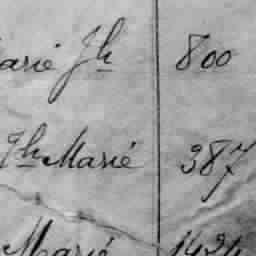 Marié Jh 800
Jh Marié 387
Marié 1424